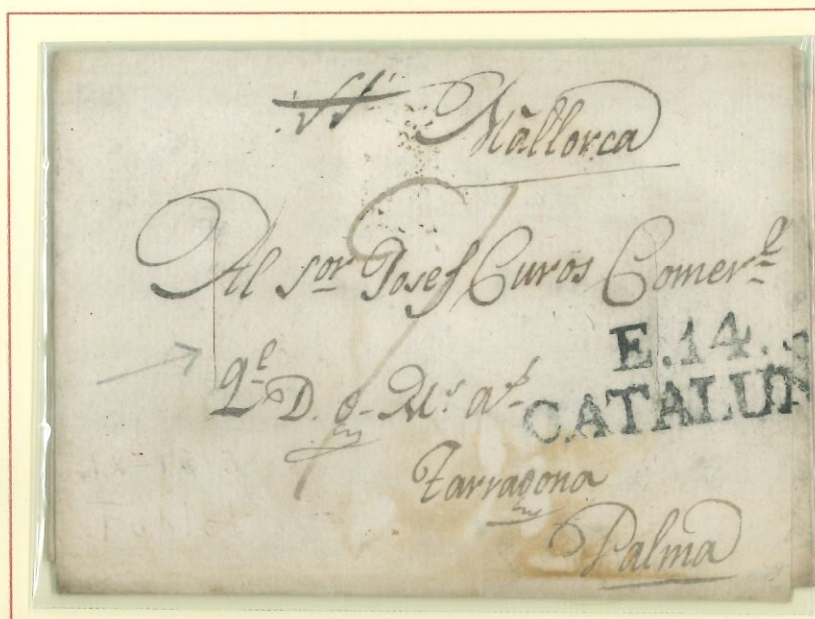 Mallorca
Al Sor Josef Curos Comerte
E.14.
CATALUÑ
Qe D. g. Ms as
Tarragona
Palma